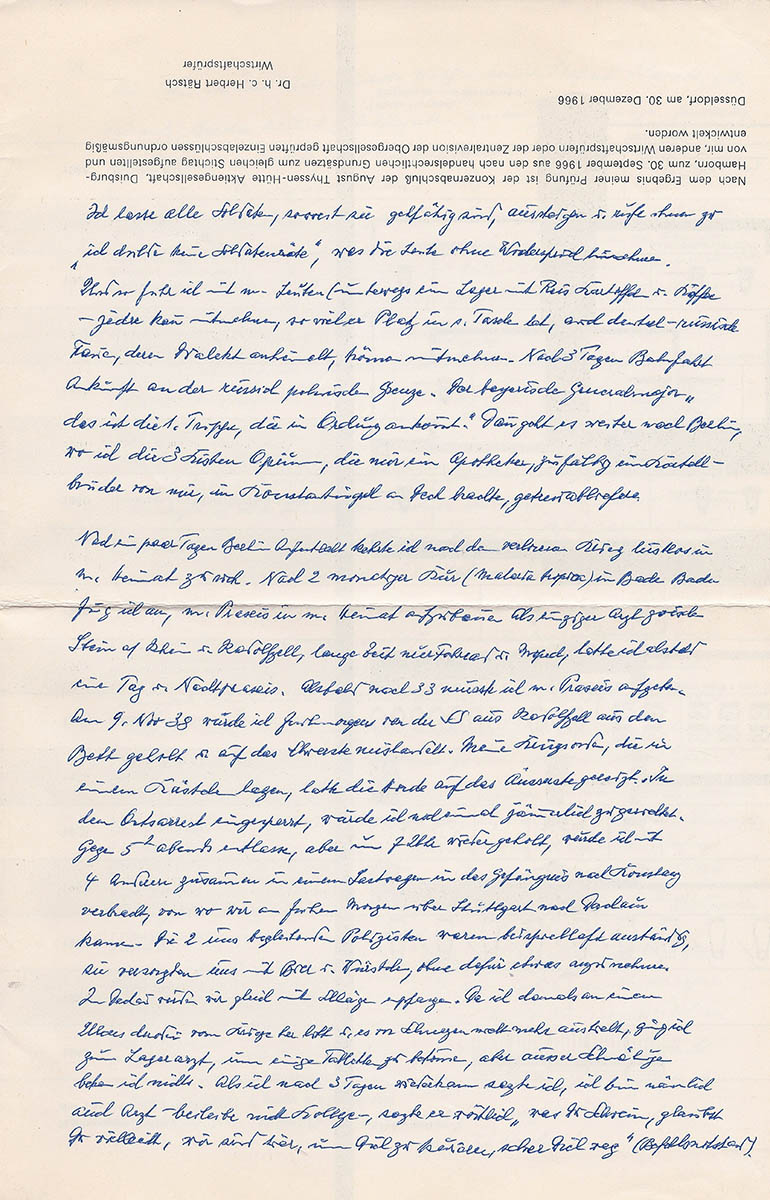 Ich lasse alle Soldaten, soweit sie gehfähig sind, aussteigen u. rufe ihnen zu
„ich dulde keine Soldatenräte“, was die Leute ohne Widerspruch hinnehmen.
Und so fuhr ich mit m. Leuten (unterwegs ein Lager mit Reis Kartoffeln u. Kaffee
– jeder kann mitnehmen, so viel er Platz in s. Tasche hat, auch deutsch-russische
deren Dialekt anheimelt, können mitnehmen. Nach 3 Tagen Bahnfahrt
Ankunft an der russisch polnischen Grenze. Der bayerische Generalmajor „
das ist die 1. Truppe, die in Ordnung ankommt.“ Dann geht es weiter nach Berlin,
wo ich die 3 Kisten Opium, die mir ein Apotheker, zufällig ein Kartell-
bruder von mir, in Konstantinopel an Deck brachte, getreu abliefere.
Nach ein paar Tagen Berlin Aufenthalt kehrte ich nach dem verlorenen Krieg lustlos in
m. Heimat zurück. Nach 2 monatiger Kur (Malaria tropica) in Baden Baden
fing ich an, m. Praxis in m. Heimat aufzubauen. Als einziger Arzt zwischen
Stein a/ Rhein u. Radolfzell, lange Zeit nur Fahrrad u. Moped, hatte ich alsbald
eine Tag u. Nachtpraxis. Alsbald nach 33 musste ich m. Praxis aufgeben.
Am 9. Nov 38 wurde ich frühmorgens von der SS aus Radolfzell aus dem
Bett geholt u. auf das Schwerste misshandelt. Meine Kriegsorden, die in
einem Kästchen lagen, hatte die Horde auf das Äusserste gereizt. In
den Ortsarrest eingesperrt, wurde ich noch einmal jämmerlich zugerichtet.
Gegen 5h abends entlassen, aber um 7 Uhr wieder geholt, wurde ich mit
4 Anderen zusammen in einem Lastwagen in das Gefängnis nach Konstanz
verbracht, von wo wir am frühen Morgen über Stuttgart nach Dachau
kamen. Die 2 uns begleitenden Polizisten waren beispielhaft anständig,
sie versorgten uns mit Bier u. Würstchen, ohne dafür etwas anzunehmen.
In Dachau wurden wir gleich mit Schlägen empfangen. Da ich damals an einem
Ulcus duodeni vom Kriege her litt u. es vor Schmerzen nicht mehr aushielt, ging ich
zum Lagerarzt, um einige Tabletten zu bekommen, aber ausser Schmähungen
bekam ich nichts. Als ich nach 3 Tagen wiederkam sagte ich, ich bin nämlich
auch Arzt – beileibe nicht Kollege –, sagte er wörtlich „was Du Schwein, glaubst
Du vielleicht, wir sind hier, um Dich zu kurieren, scher Dich weg“
Nach dem Ergebnis meiner Prüfung ist der Konzernabschluß der August Thyssen-Hütte Aktiengesellschaft, Duisburg-
Hamborn, zum 30. September 1966 aus den nach handelsrechtlichen Grundsätzen zum gleichen Stichtag aufgestellten und
von mir, anderen Wirtschaftsprüfern oder der Zentralrevision der Obergesellschaft geprüften Einzelabschlüssen ordnungsmäßig
entwickelt worden.
Düsseldorf, am 30. Dezember 1966
Dr. h. c. Herbert Rätsch
Wirtschaftsprüfer